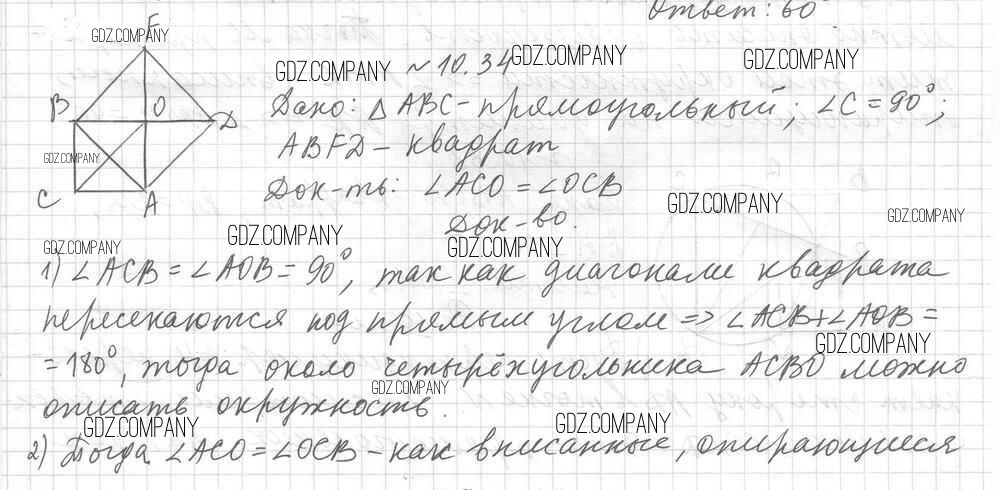 Ответ: 60°
F
GDZ.COMPANY
№ 10.34
GDZ.COMPANY
GDZ.COMPANY
GDZ.COMPANY
B
O
D
Дано: △ABC - прямоугольный; ∠C = 90°;
ABFD - квадрат
GDZ.COMPANY
Док-ть: ∠ACO = ∠OCB
C
A
GDZ.COMPANY
GDZ.COMPANY
Док-во.
GDZ.COMPANY
GDZ.COMPANY
GDZ.COMPANY
1) ∠ACB = ∠AOB = 90°, так как диагонали квадрата
пересекаются под прямым углом => ∠ACB+∠AOB =
GDZ.COMPANY
= 180°, тогда около четырёхугольника ACBO можно
GDZ.COMPANY
описать окружность.
GDZ.COMPANY
GDZ.COMPANY
2) Тогда ∠ACO = ∠OCB - как вписанные, опирающиеся